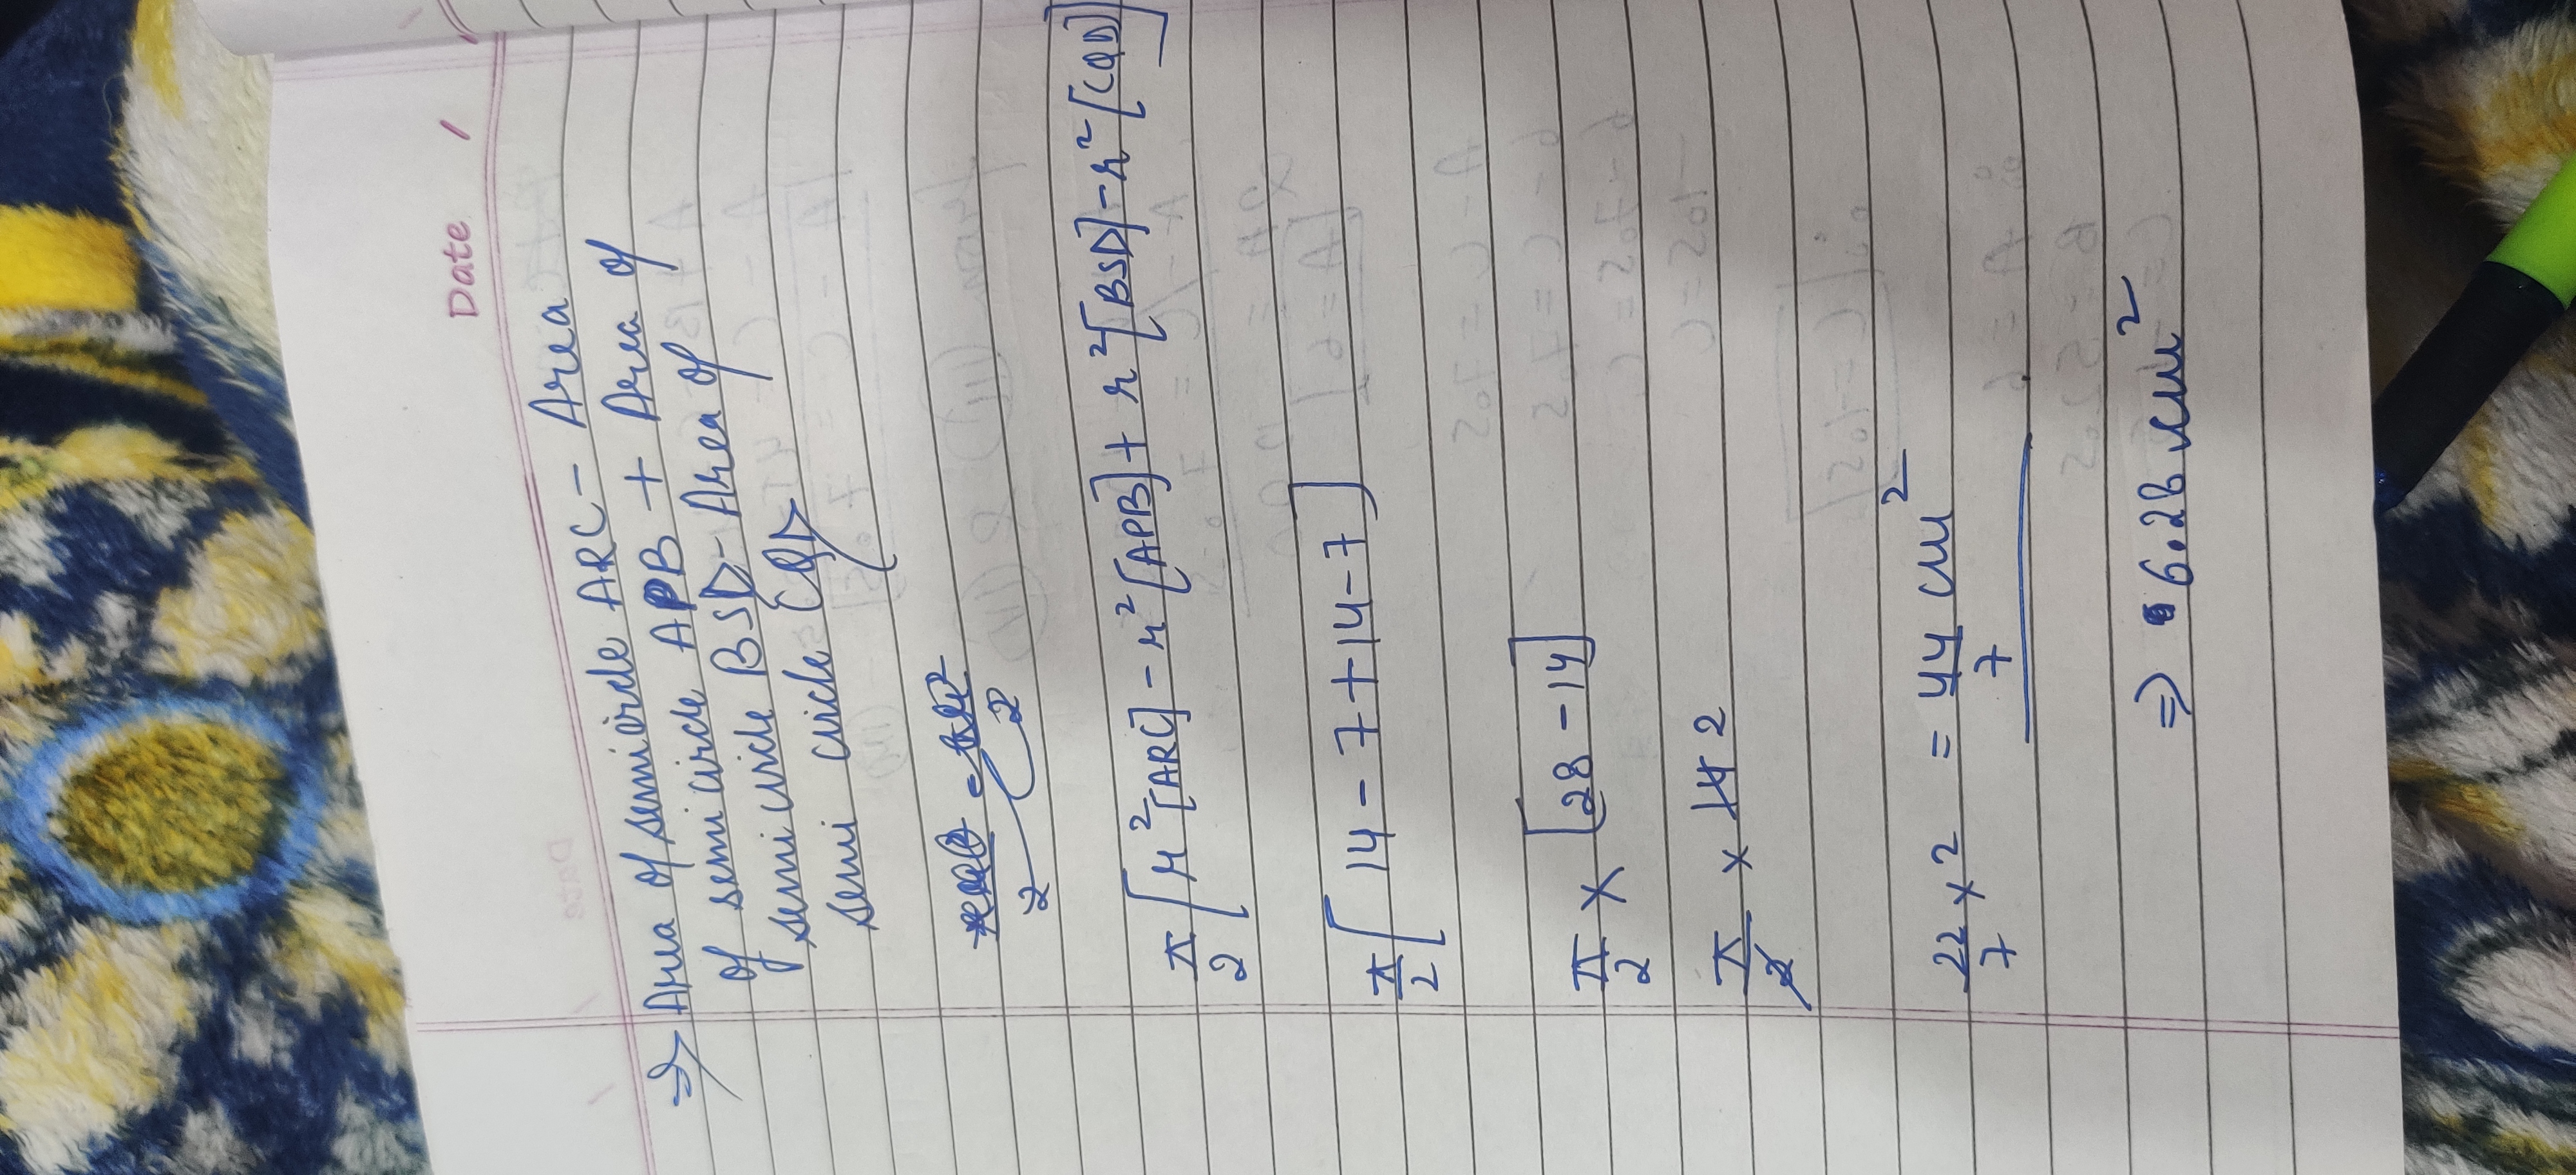 Date / /
⇒ Area of semicircle ARC - Area
of semi circle APB + Area of
semi circle BSD - Area of
semi circle CQD
2 2
π/2 [r² [ARC] - r² [APB] + r² [BSD] - r² [CQD]]
π/2 [14 - 7 + 14 - 7]
π/2 × [28 - 14]
π/2 × 14 2
22/7 × 2 = 44/7 cm²
⇒ 6.28 cm²